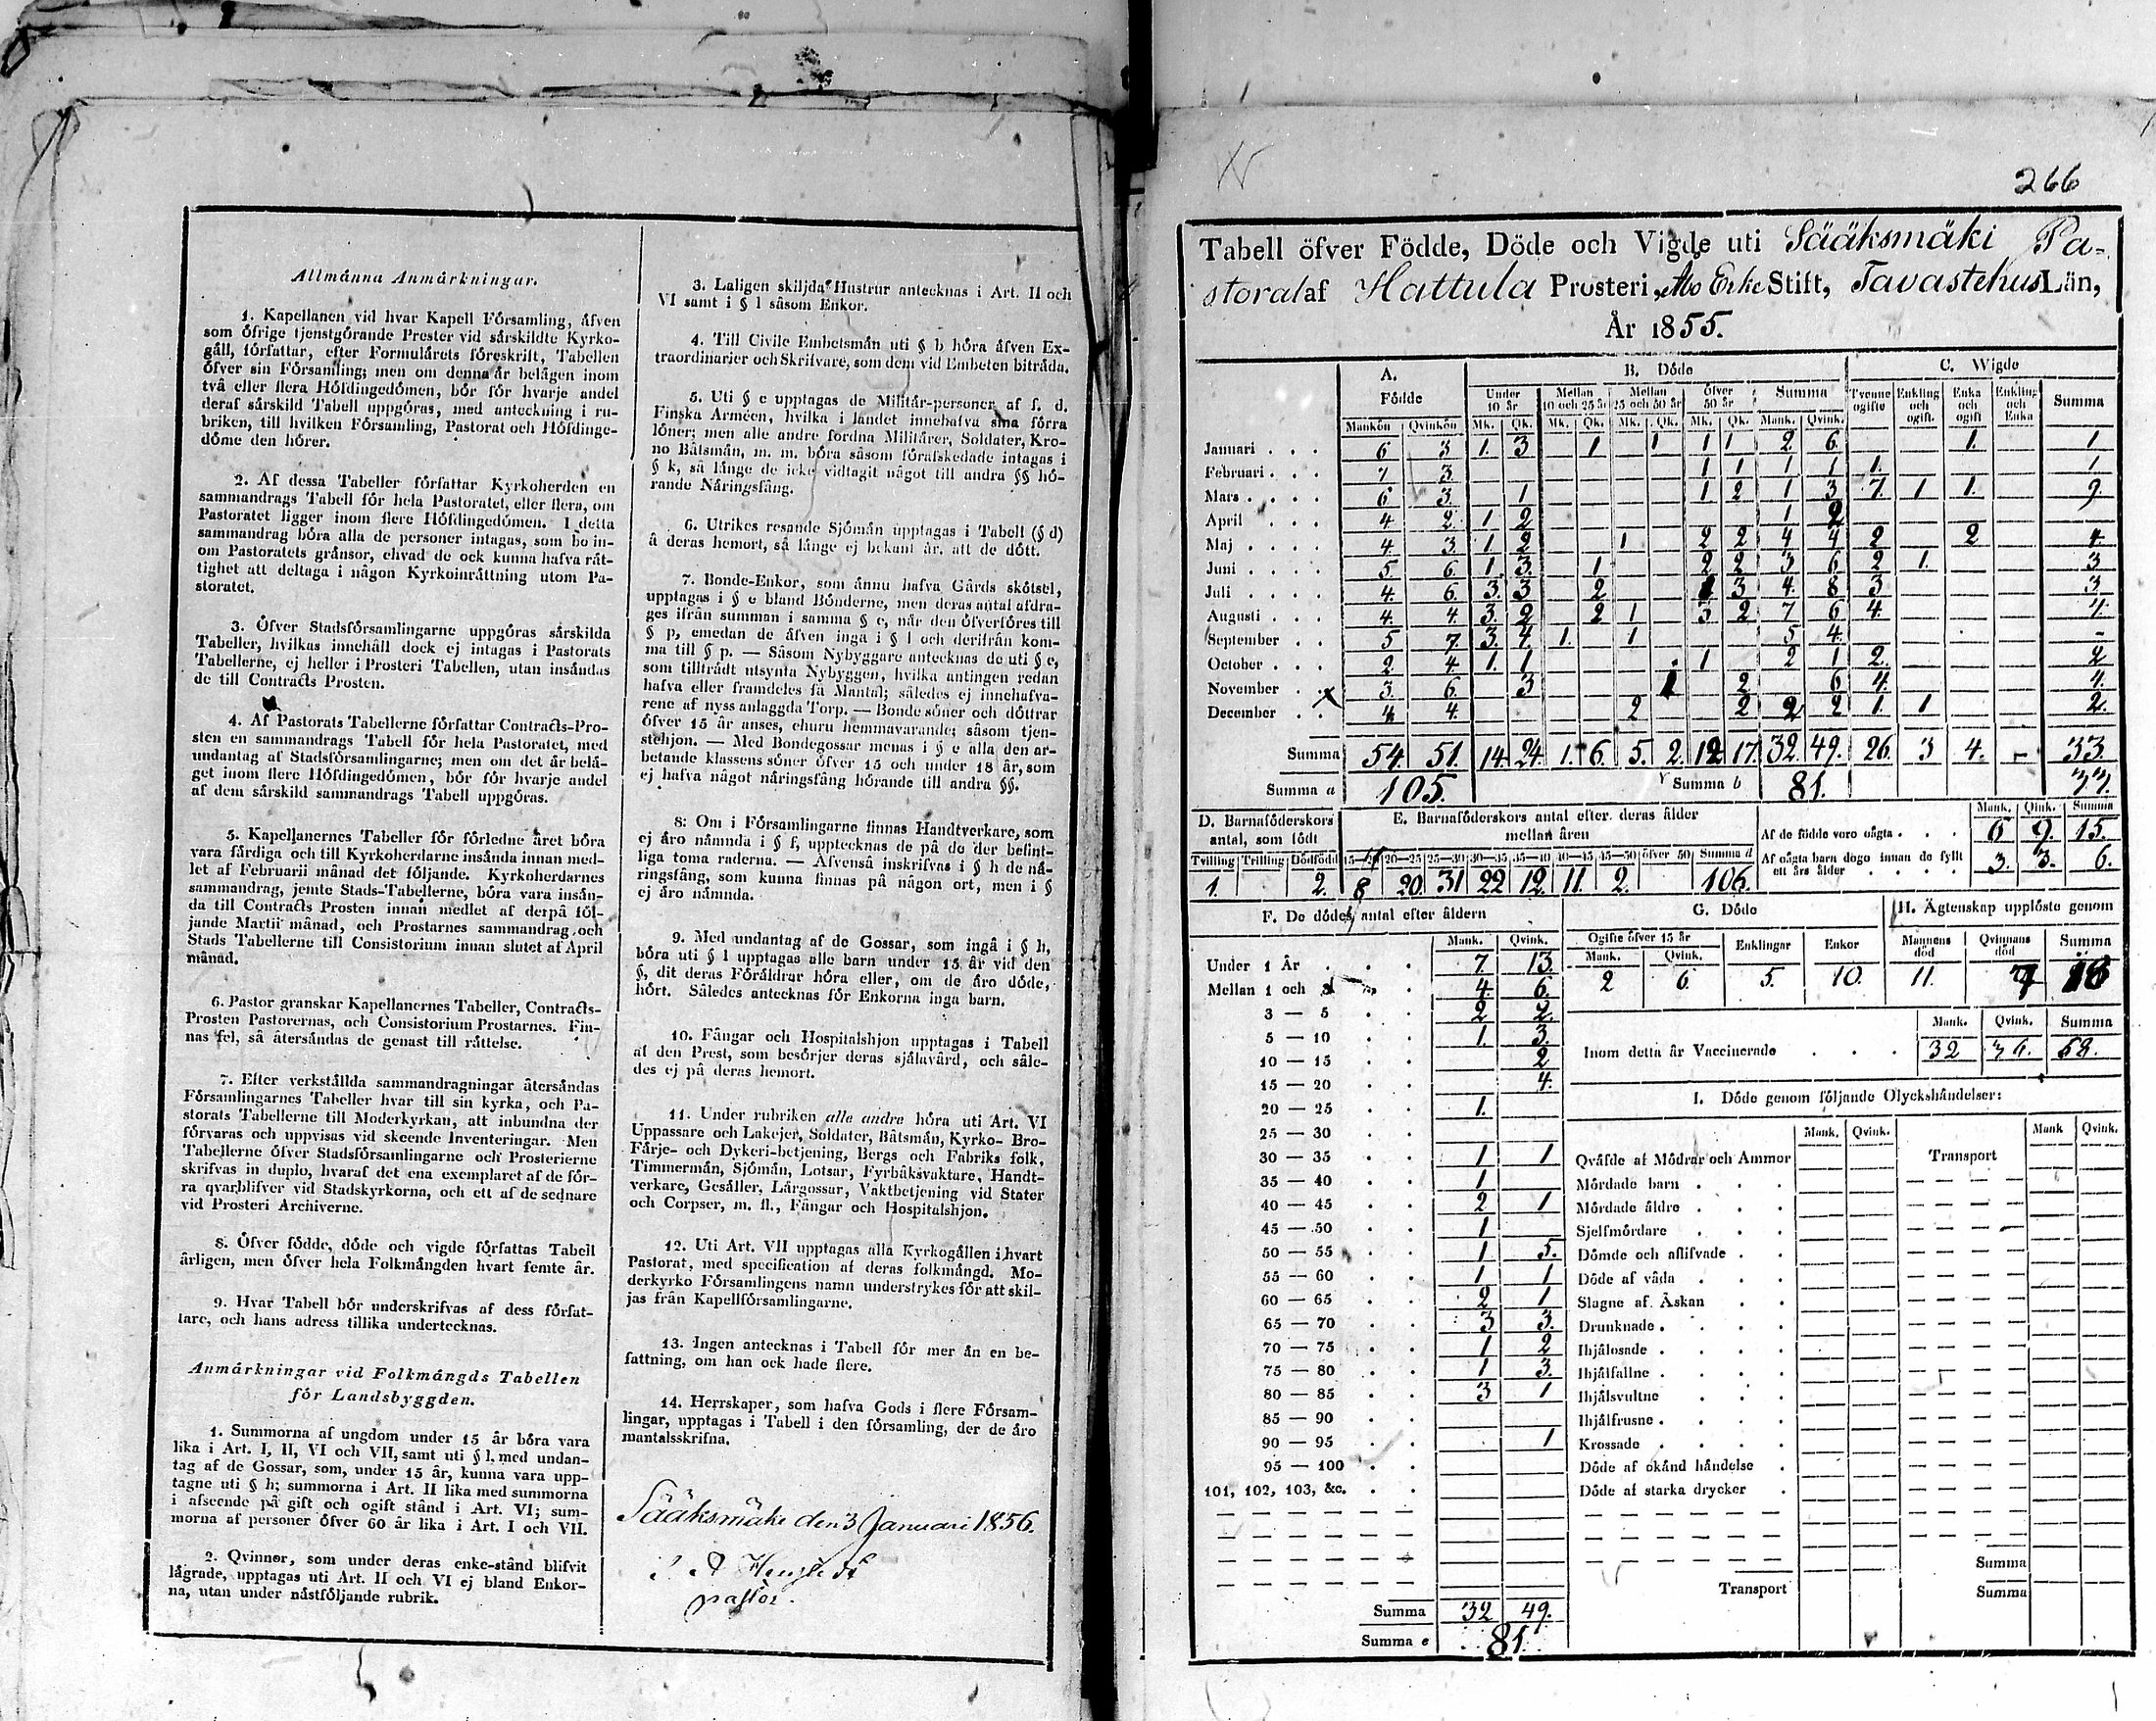 Allmånna Anmårkningar.
1. Kapellanen vid hvar Kapell Församling, åfven
som öfrige tjenstgörande Prester vid sårskildte Kyrko-
gåll, författar, efter Formulårets föreskrift, Tabellen
öfver sin Församling; men om denna år belågen inom
två eller flera Höfdingedömen, bör för hvarje andel
deraf sårskild Tabell uppgöras, med anteckning i ru-
briken, till hvilken Församling, Pastorat och Höfdinge-
döme den hörer.
2. Af dessa Tabeller författar Kyrkoherden en
sammandrags Tabell för hela Pastoratet, eller flera, om
Pastoratet ligger inom flere Höfdingedömen. I detta
sammandrag böra alla de personer intagas, som bo in-
om Pastoratets grånsor, ehvad de ock kunna hafva råt-
tighet att deltaga i någon Kyrkoinråttning utom Pa-
storatet.
3. Öfver Stadsförsamlingarne uppgöras sårskilda
Tabeller, hvilkas innehåll dock ej intagas i Pastorats
Tabellerne, ej heller i Prosteri Tabellen, utan insåndas
de till Contracts Prosten.
4. Af Pastorats Tabellerne författar Contracts-Pro-
sten en sammandrags Tabell för hela Pastoratet, med
undantag af Stadsförsamlingarne; men om det år belå-
get inom flere Höfdingedömen, bör för hvarje andel
af dem sårskild sammandrags Tabell uppgöras.
5. Kapellanernes Tabeller för förledne året böra
vara fårdiga och till Kyrkoherdarne insånda innan med-
let af Februarii månad det följande. Kyrkoherdarnes
sammandrag, jemte Stads-Tabellerne, böra vara insån-
da till Contracts Prosten innan medlet af derpå föl-
jande Martii månad, och Prostarnes sammandrag och
Stads Tabellerne till Consistorium innan slutet af April
månad.
6. Pastor granskar Kapellanernes Tabeller, Contracts-
Prosten Pastorernas, och Consistorium Prostarnes. Fin-
nas fel, så återsåndas de genast till råttelse.
7. Efter verkstållda sammandragningar återsåndas
Församlingarnes Tabeller hvar till sin kyrka, och Pa-
storats Tabellerne till Moderkyrkan, att inbundna der
förvaras och uppvisas vid skeende Inventeringar. Men
Tabellerne öfver Stadsförsamlingarne och Prosterierne
skrifvas in duplo, hvaraf det ena exemplaret af de för-
ra qvarblifver vid Stadskyrkorna, och ett af de sednare
vid Prosteri Archiverne.
8. Öfver födde, döde och vigde författas Tabell
årligen, men öfver hela Folkmångden hvart femte år.
9. Hvar Tabell bör underskrifvas af dess förfat-
tare, och hans adress tillika undertecknas.
Anmårkningar vid Folkmångds Tabellen
för Landsbyggden.
1. Summorna af ungdom under 15 år böra vara
lika i Art. I, II, VI och VII, samt uti § l, med undan-
tag af de Gossar, som, under 15 år, kunna vara upp-
tagne uti § h; summorna i Art. II lika med summorna
i afseende på gift och ogift stånd i Art. VI; sum-
morna af personer öfver 60 år lika i Art. I och VII.
2. Qvinnor, som under deras enke-stånd blifvit
lågrade, upptagas uti Art. II och VI ej bland Enkor-
na, utan under nåstföljande rubrik.
3. Laligen skiljda Hustrur antecknas i Art. II och
VI samt i § l såsom Enkor.
4. Till Civile Embetsmån uti § b höra åfven Ex-
traordinarier och Skrifvare, som dem vid Embeten bitråda.
5. Uti § c upptagas de Militår-personer af f. d.
Finska Arméen, hvilka i landet innehafva sina förra
löner; men alle andre fordna Militårer, Soldater, Kro-
no Båtsmån, m. m. böra såsom förafskedade intagas i
§ k, så långe de icke vidtagit något till andra §§ hö-
rande Nåringsfång.
6. Utrikes resande Sjömån upptagas i Tabell (§ d)
å deras hemort, så långe ej bekant år, att de dött.
7. Bonde-Enkor, som ånnu hafva Gårds skötsel,
upptagas i § e bland Bönderne, men deras antal afdra-
ges ifrån summan i samma § e, når den öfverföres till
§ p, emedan de åfven ingå i § l och derifrån kom-
ma till § p. — Såsom Nybyggare antecknas de uti § e,
som tilltrådt utsynta Nybyggen, hvilka antingen redan
hafva eller framdeles få Mantal; således ej innehafva-
rene af nyss anlaggda Torp. — Bonde söner och döttrar
öfver 15 år anses, ehuru hemmavarande, såsom tjen-
stehjon. — Med Bondegossar menas i § e alla den ar-
betande klassens söner öfver 15 och under 18 år, som
ej hafva något nåringsfång hörande till andra §§.
8: Om i Församlingarne finnas Handtverkare, som
ej åro nåmnda i § f, upptecknas de på de der befint-
liga toma raderna. — Åfvenså inskrifvas i § h de nå-
ringsfång, som kunna finnas på någon ort, men i §
ej åro nåmnda.
9. Med undantag af de Gossar, som ingå i § h,
böra uti § l upptagas alle barn under 15 år vid den
§, dit deras Föråldrar höra eller, om de åro döde,
hört. Således antecknas för Enkorna inga barn.
10. Fångar och Hospitalshjon upptagas i Tabell
af den Prest, som besörjer deras sjålavård, och såle-
des ej på deras hemort.
11. Under rubriken alle andre höra uti Art. VI
Uppassare och Lakejer, Soldater, Båtsmån, Kyrko- Bro-
Fårje- och Dykeri-betjening, Bergs och Fabriks folk,
Timmermån, Sjömån, Lotsar, Fyrbåksvaktare, Handt-
verkare, Gesåller, Lårgossar, Vaktbetjening vid Stater
och Corpser, m. fl., Fångar och Hospitalshjon.
12. Uti Art. VII upptagas alla Kyrkogållen i hvart
Pastorat, med specification af deras folkmångd. Mo-
derkyrko Församlingens namn understrykes för att skil-
jas från Kapellförsamlingarne.
13. Ingen antecknas i Tabell för mer ån en be-
fattning, om han ock hade flere.
14. Herrskaper, som hafva Gods i flere Försam-
lingar, upptagas i Tabell i den församling, der de åro
mantalsskrifna.
Sääksmäki den 3 Januari 1856.
pastor.
266
Tabell öfver Födde, Döde och Vigde uti Sääksmäki Pa-
storat af Hattula Prosteri, Åbo Erke Stift, Tavastehus Län,
År 1855.
A. Födde B. Döde C. Wigde
Under 10 år Mellan 10 och 25 år Mellan 25 och 50 år Öfver 50 år Summa Tvenne ogifte Enkling och ogift. Enka och ogift Enkling och Enka Summa
Mankön Qvinkön Mk. Qk. Mk. Qk. Mk. Qk. Mk. Qk. Mank. Qvink.
Januari 6 3 1. 3 1 1 1 1 2 6. 1. 1
Februari 7 3. 1 1 1 1 1. 1
Mars 6 3. 1 1 2 1 3 7. 1 1. 9.
April 4 2. 1 2 1 2
Maj 4. 3. 1 2 1 2 2 4 4 2 2 4.
Juni 5. 6. 1. 3. 1 2 2 3 6. 2 1. 3
Juli 4. 6. 3. 3 2 1 3 4. 8 3 3
Augusti 4. 4. 3. 2 2 1 3 2 7 6 4. 4.
September 5 7. 3. 4. 1. 1 5 4. -
October 2. 4. 1. 1 1 2 1 2. 2
November 3 6. 3 1 2 6 4. 4.
December 4 4. 2 2 2 2 1 1 2.
Summa 54. 51. 14. 24. 1. 6. 5. 2. 12 17. 32. 49. 26. 3 4. - 33.
Summa a 105. Summa b 81. 33.
D. Barnaföderskors antal, som födt E. Barnaföderskors antal efter deras ålder mellan åren
Tvilling Trilling Dödfödd 15—20 20—25 25—30 30—35 35—40 40—45 45—50 öfver 50 Summa d
1. 2. 8 20. 31 22 12. 11. 2. 106.
Mank. Qink. Summa
Af de födde voro oågta 6 9. 15.
Af oågta barn dögo innan de fyllt ett års ålder 3. 3. 6.
F. De dödes antal efter åldern
Mank. Qvink.
Under 1 År 7. 13.
Mellan 1 och 3 4. 6.
3 — 5 2 2.
5 — 10 1. 3.
10 — 15 2
15 — 20 4.
20 — 25 1.
25 — 30
30 — 35 1 1
35 — 40 1
40 — 45 2 1
45 — 50 1
50 — 55 1 5.
55 — 60 1 1
60 — 65 2 1
65 — 70 3 3.
70 — 75 1 2
75 — 80 1 3.
80 — 85 3 1
85 — 90
90 — 95 1
95 — 100
101, 102, 103, &c.
Summa 32 49.
Summa e 81.
G. Döde H. Ägtenskap upplöste genom
Ogifte öfver 15 år Enklingar Enkor Mannens död Qvinnans död Summa
Mank. Qvink.
2 6. 5. 10. 11. 7 18
Mank. Qvink. Summa
Inom detta år Vaccinerade 32 36. 68.
I. Döde genom följande Olyckshåndelser:
Mank. Qvink. Mank Qvink.
Qvåfde af Mödrar och Ammor Transport
Mördade barn
Mördade åldre
Sjelfmördare
Dömde och aflifvade
Döde af våda
Slagne af Åskan
Drunknade
Ihjålosade
Ihjålfallne
Ihjålsvultne
Ihjålfrusne
Krossade
Döde af okånd håndelse
Döde af starka drycker
Summa
Transport Summa